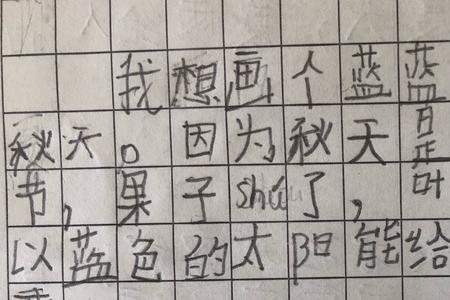 我想画个蓝蓝
秋天。因为秋天是
节，果子shú了，叶
以蓝色的太阳能给